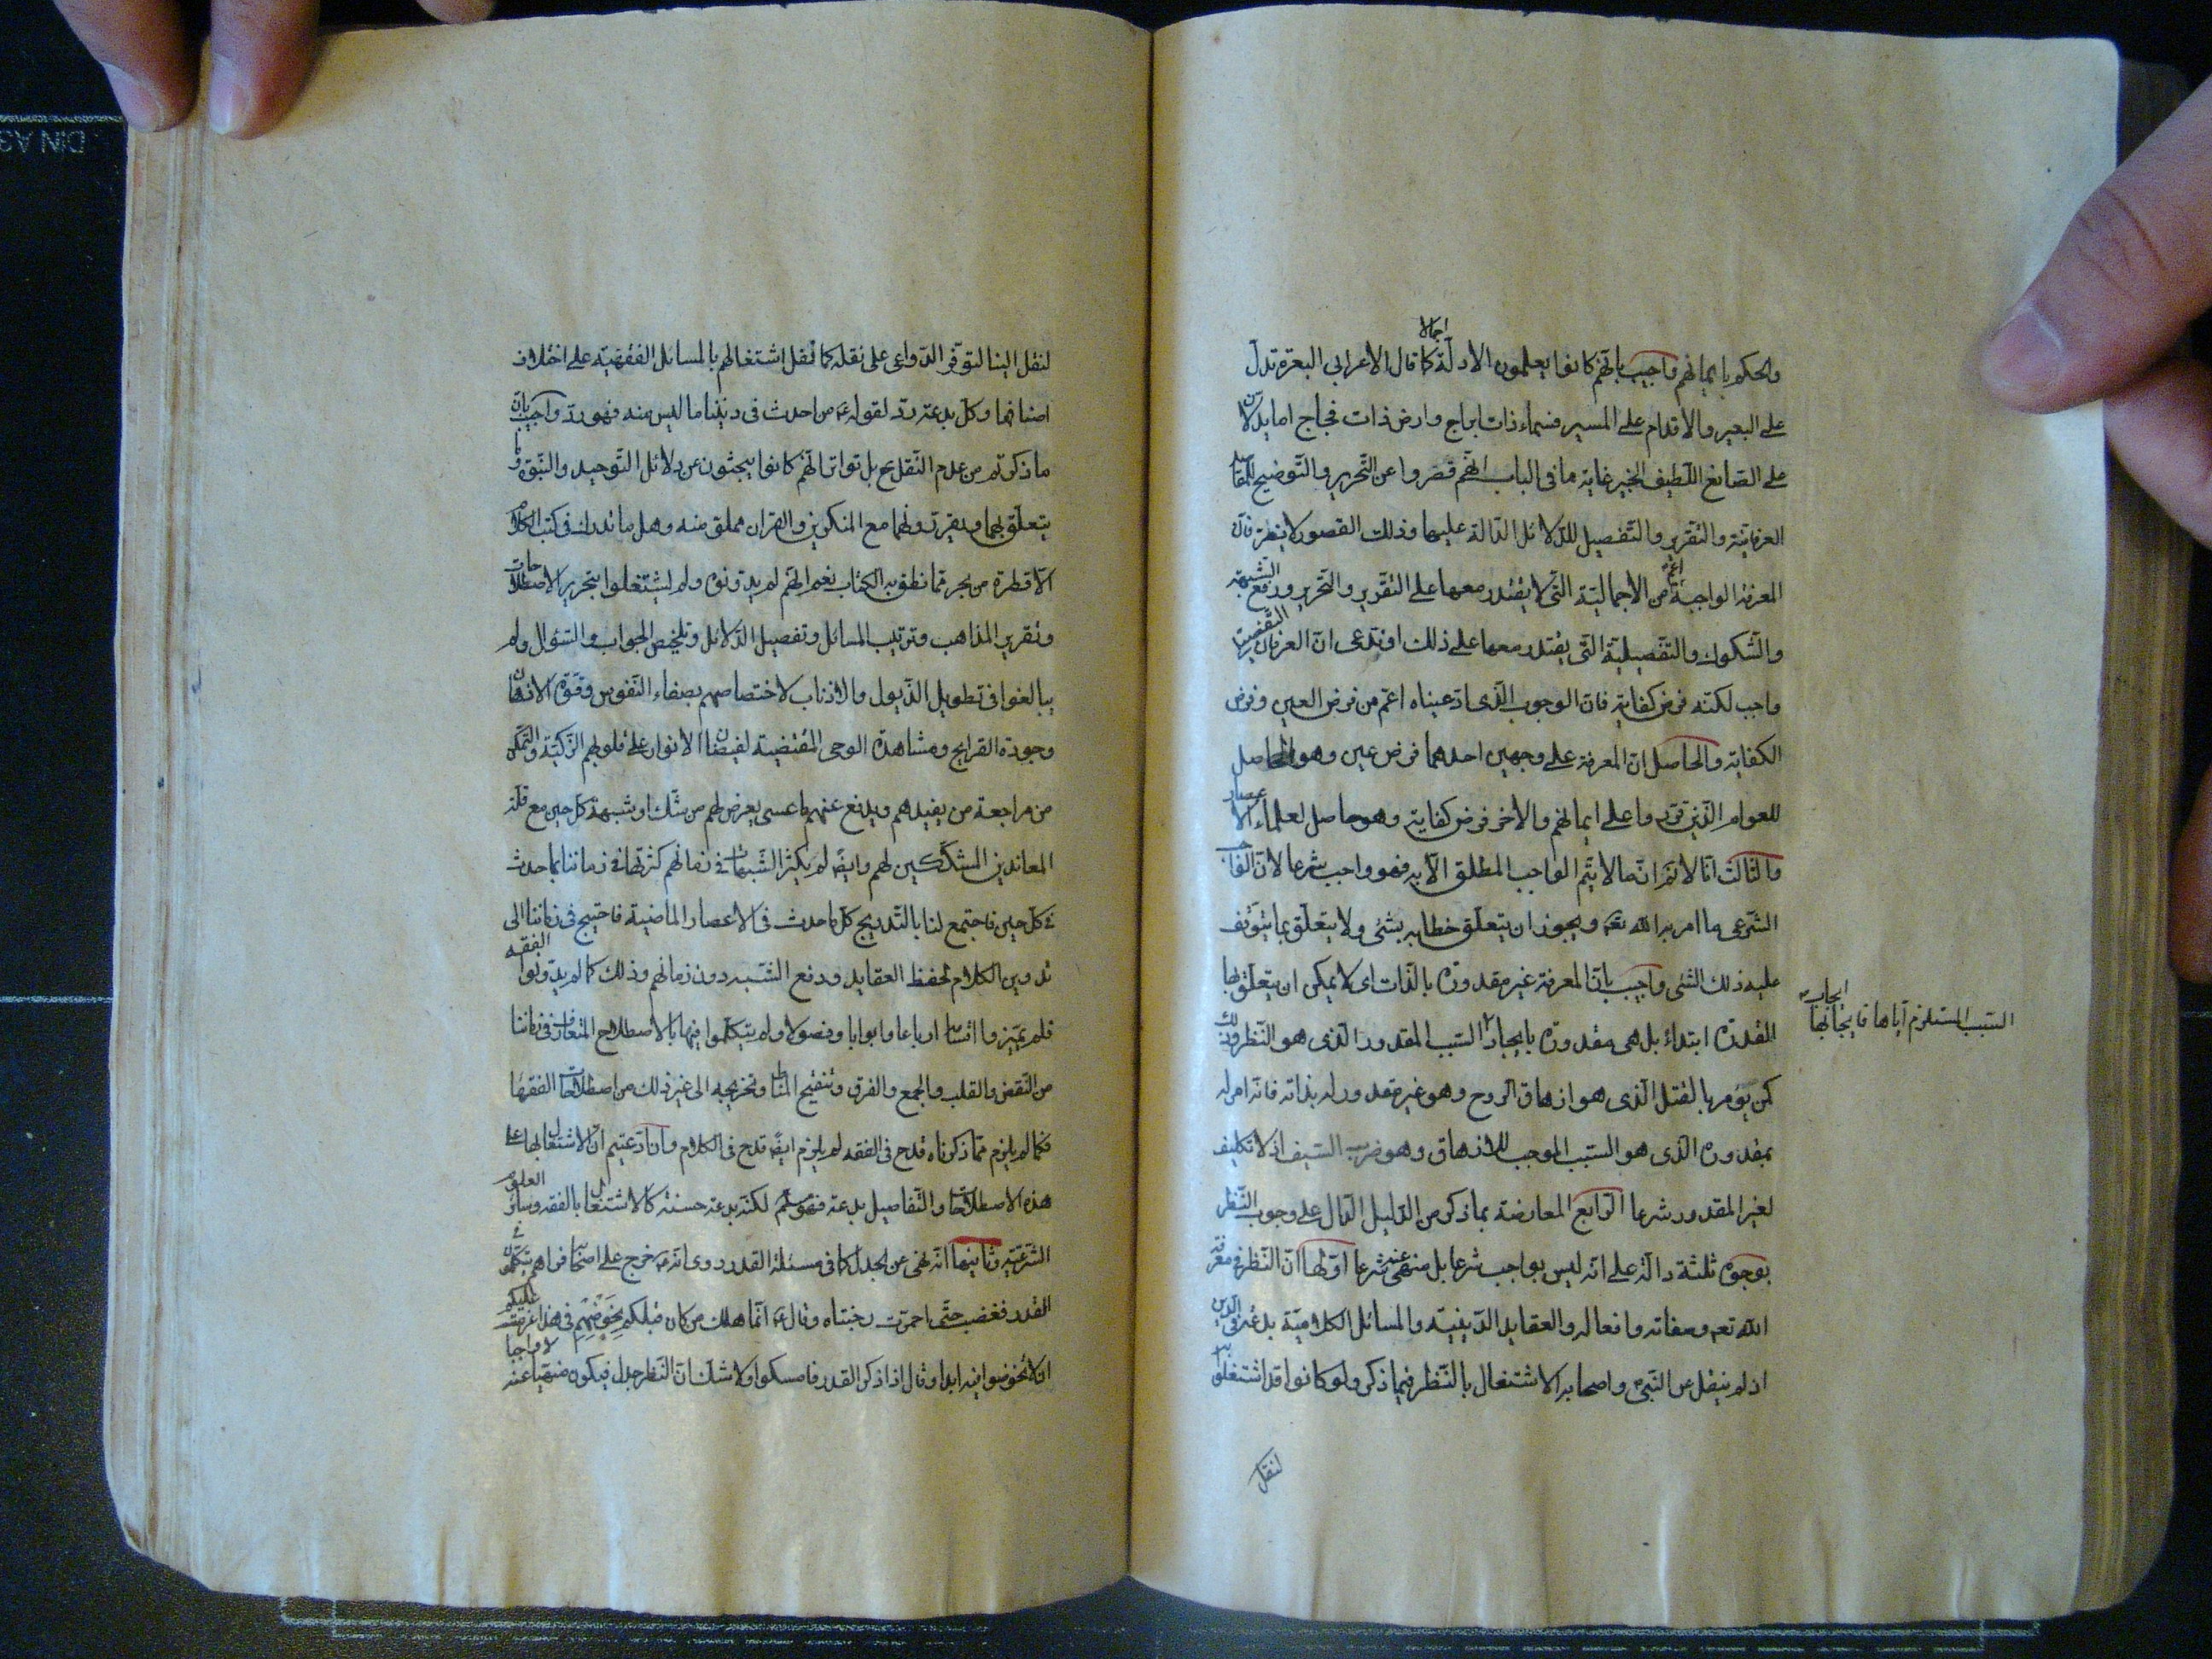 والحكم بايمانهم واجيب بانهم كانوا يعلمون الادلة اجمالا كما قال الاعرابى البعرة تدل
على البعير والاقدام على المسير فسماء ذات ابراج وارض ذات فجاج اما يدلان
على الصانع اللطيف الخبير غاية ما فى الباب انهم قصروا عن التحرير والتوضيح للمقاصد
العرفانية والتقرير والتفصيل للدلائل الدالة عليها وذلك القصور لا يضر فان
المعرفة الواجبة اعم من الاجمالية التى لا يقتدر معها على التقرير والتحرير ودفع الشبهة
والشكوك والتفصيلية التى يقتدر معها على ذلك او ندعى ان العرفان التفصيلى
واجب لكنه فرض كفاية فان الوجوب الذى ادعيناه اعم من فرض العين وفرض
الكفاية والحاصل ان المعرفة على وجهين احدهما فرض عين وهو الحاصل
للعوام الذين قرروا على ايمانهم والاخر فرض كفاية وهو حاصل لعلماء الاعصار
والثالث انا لا نم ان ما لا يتم الواجب المطلق الا به فهو واجب شرعا لان الواجب
الشرعى ما امر به الله تعه ويجوز ان يتعلق خطابه بشئ ولا يتعلق بما يتوقف
عليه ذلك الشئ واجيب بان المعرفة غير مقدورة بالذات اى لا يمكن ان يتعلق بها
القدرة ابتداء بل هى مقدورة بايجاد السبب المقدور الذى هو النظر وذلك
كمن يؤمر بالقتل الذى هو ازهاق الروح وهو غير مقدور له بذاته فانه امر له
بمقدوره الذى هو السبب الموجب للازهاق وهو ضرب السيف اذ لا تكليف
لغير المقدور شرعا الرابع المعارضة بما ذكر من الدليل الدال على وجوب النظر
بوجوه ثلثة دالة على انه ليس بواجب شرعا بل منهى عنه شرعا اولها ان النظر فى معرفة
الله تعه وصفاته وافعاله والعقايد الدينية والمسائل الكلامية بدعة فى الدين
اذ لم ينقل عن النبى واصحابه الاشتغال بالنظر فيما ذكر ولو كانوا قد اشتغلوا به
لنقل
السبب المستلزم اياها فايجابها ايجاب
لنقل الينا لتوفر الدواعى على نقله كما نقل اشتغالهم بالمسائل الفقهية على اختلاف
اصنافها وكل بدعة رد لقوله عم من احدث فى ديننا ما ليس منه فهو رد واجيب بان
ما ذكرتم من عدم النقل مم بل تواتر انهم كانوا يبحثون عن دلائل التوحيد والنبوة وما
يتعلق بهما ويقررونهما مع المنكرين والقران مملو منه وهل ما نذكر فى كتب الكلام
الا قطرة من بحر مما نطق به الكتاب نعم انهم لم يدونوه ولم يشتغلوا بتحرير الاصطلاحات
وتقرير المذاهب وترتيب المسائل وتفصيل الدلائل وتلخيص الجواب والسؤال ولم
يبالغوا فى تطويل الذيول والاذناب لاختصاصهم بصفاء النفوس وقوة الاذهان
وجودة القرايح ومشاهدة الوحى المقتضية لفيضان الانوار على قلوبهم الزكية والتمكن
من مراجعة من يفيدهم ويدفع عنهم ما عسى يعرض لهم من شك او شبهة كل حين مع قلة
المعاندين المشككين لهم وايض لم يكثر الشبهات فى زمانهم كثرتها فى زماننا بما حدث
فى كل حين فاجتمع لنا بالتدريج كل ما حدث فى الاعصار الماضية فاحتيج فى زماننا الى
تدوين الكلام لحفظ العقايد ودفع الشبه دون زمانهم وذلك كما لم يدونوا الفقه
فلم يميزوا اقسامه ارباعا وابوابا وفصولا ولم يتكلموا فيها بالاصطلاح المتعارف فى زماننا
من النقض والقلب والجمع والفرق وتنقيح المناط وتخريجه الى غير ذلك من اصطلاحات الفقهاء
فكما لم يلزم مما ذكرناه قدح فى الفقه لم يلزم ايض قدح فى الكلام وان ادعيتم ان الاشتغال بها على
هذه الاصطلاحات والتفاصيل بدعة فهو مسلم لكنه بدعة حسنة كالاشتغال بالفقه وسائر العلوم
الشرعية وثانيها انه نهى عن الجدل كما فى مسئلة القدر روى انه عم خرج على اصحابه فراهم يتكلمون فى
القدر فغضب حتى احمرت وجنتاه وقال عم انما هلك من كان قبلكم بخوضهم فى هذا عزمت عليكم
ان لا تخوضوا فيه ابدا وقال اذا ذكر القدر فامسكوا ولا شك ان النظر جدل فيكون منهيا عنه لا واجبا